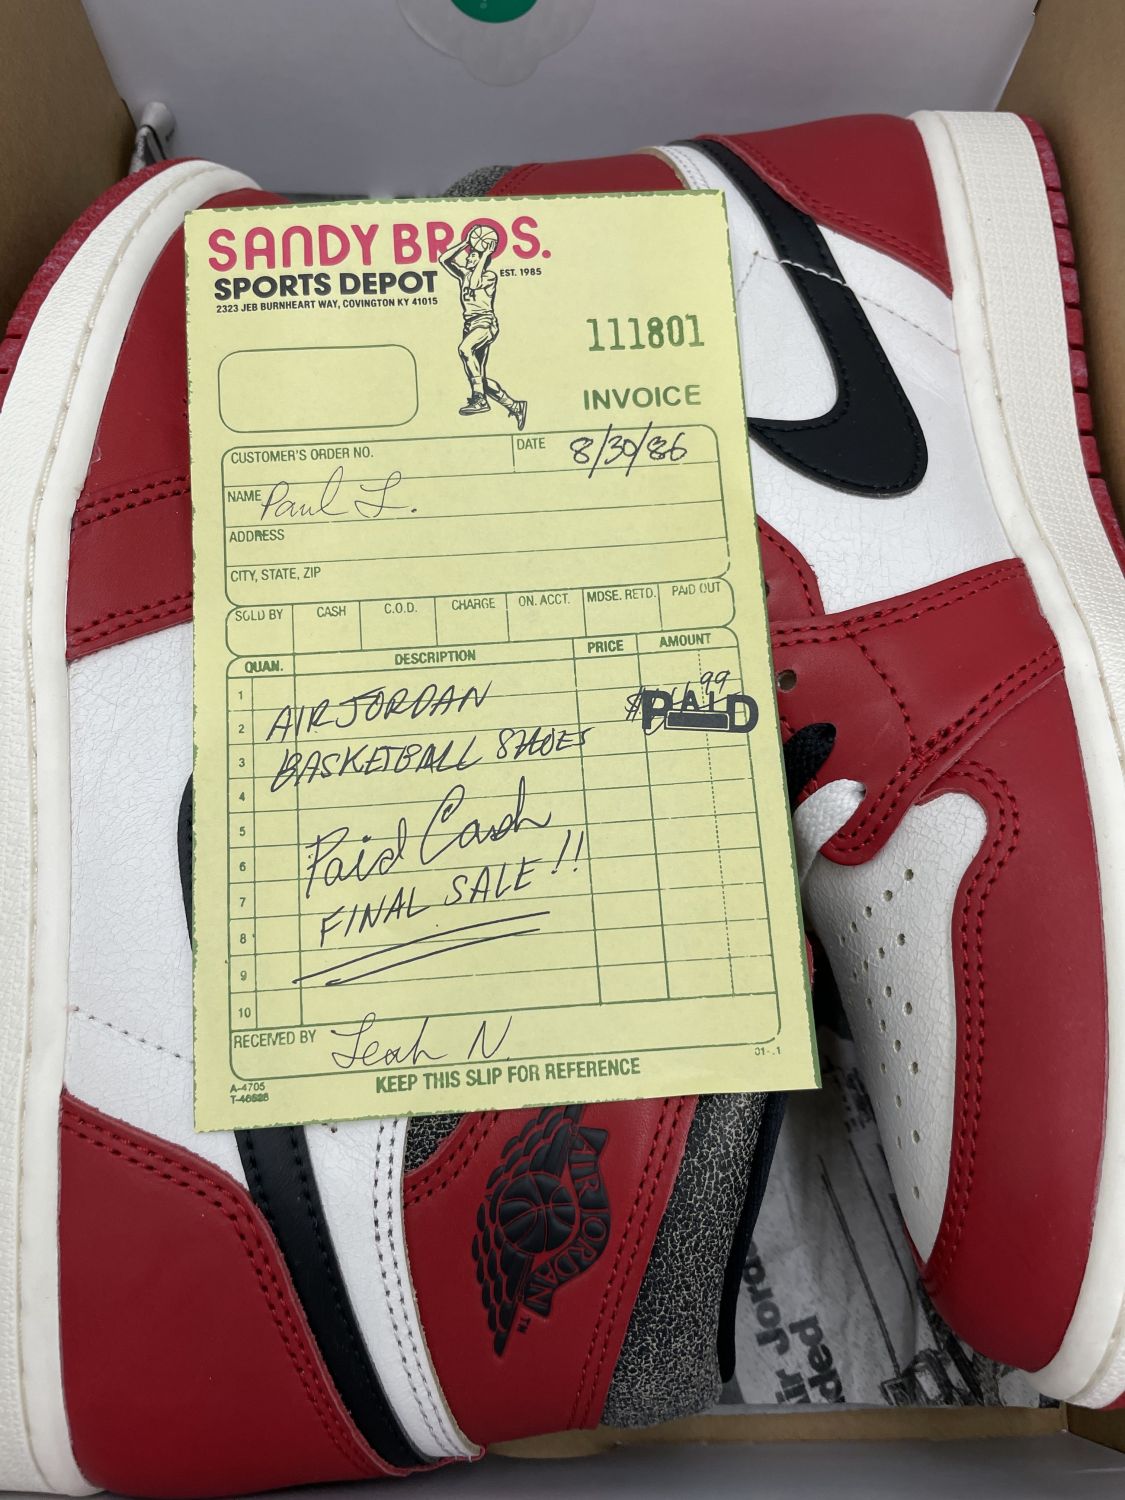 SANDY BROS.
SPORTS DEPOT
EST. 1985
2323 JEB BURNHEART WAY, COVINGTON KY 41015
24
111801
INVOICE
CUSTOMER'S ORDER NO.
DATE 8/30/86
NAME Paul L.
ADDRESS
CITY, STATE, ZIP
SOLD BY CASH C.O.D. CHARGE ON. ACCT. MDSE. RETD. PAID OUT
QUAN. DESCRIPTION PRICE AMOUNT
1 AIR JORDAN
2 BASKETBALL SHOES $ 99 PAID
3
4
5 Paid Cash
6
7 FINAL SALE!!
8
9
10
RECEIVED BY Leah N.
KEEP THIS SLIP FOR REFERENCE
A-4705
AIR JORDAN
TM